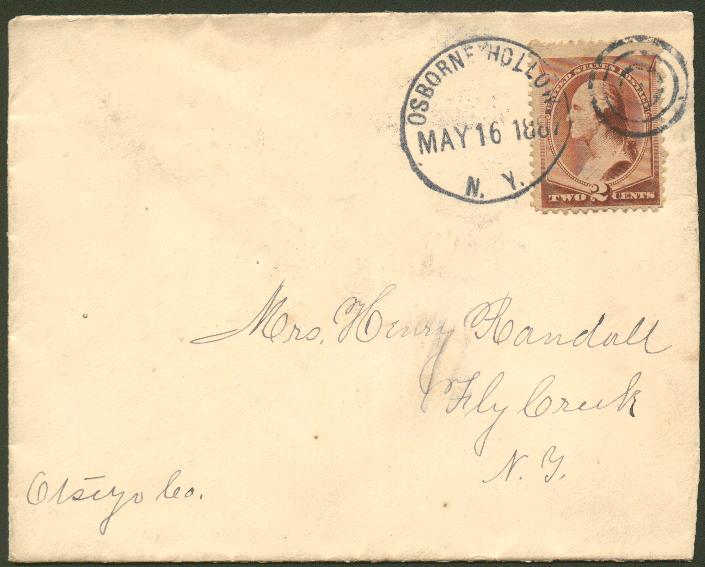 OSBORNE HOLLOW
MAY 16 1887
N. Y.
UNITED STATES POSTAGE
TWO 2 CENTS
Mrs. Henry Randall
Fly Creek
N. Y.
Otsego Co.